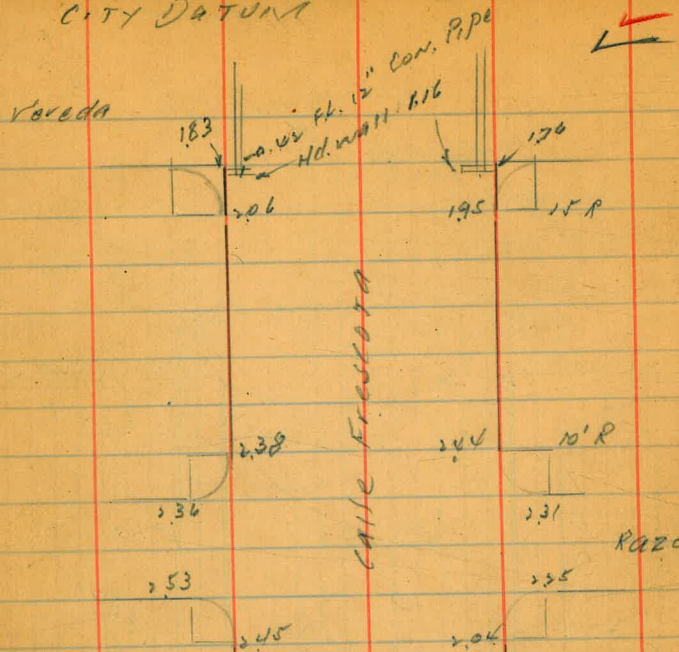 CITY DATUM
Vereda
0.42 FL. 12" Con. Pipe
Hd. wall 1.16
1.83
1.76
2.06
1.95
15 R
Calle Frescota
2.38
2.44
10' R
2.36
2.31
2.53
2.25
2.45
2.04